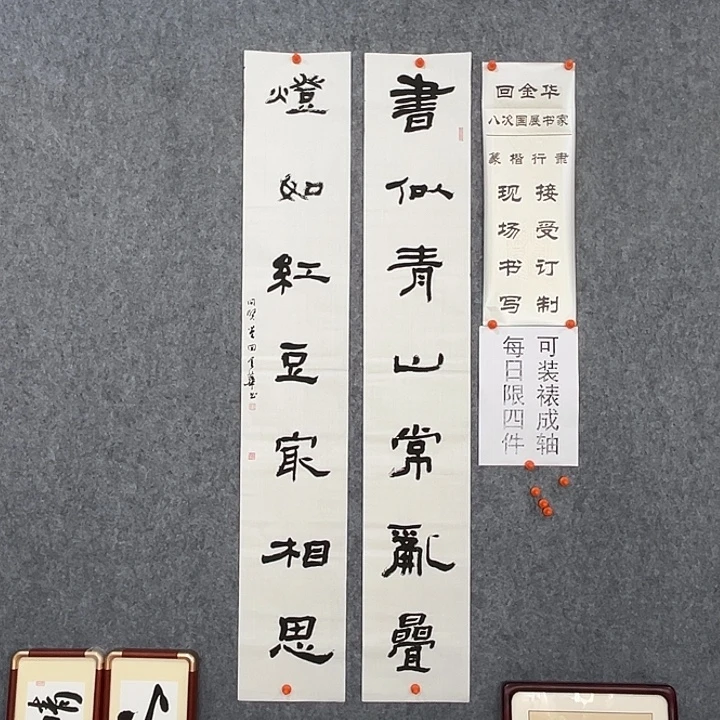 書似青山常亂疊
燈如紅豆寂相思
回金华
八次国展书家
篆楷行隶
接受订制
现场书写
可装裱成轴
每日限四件
晴